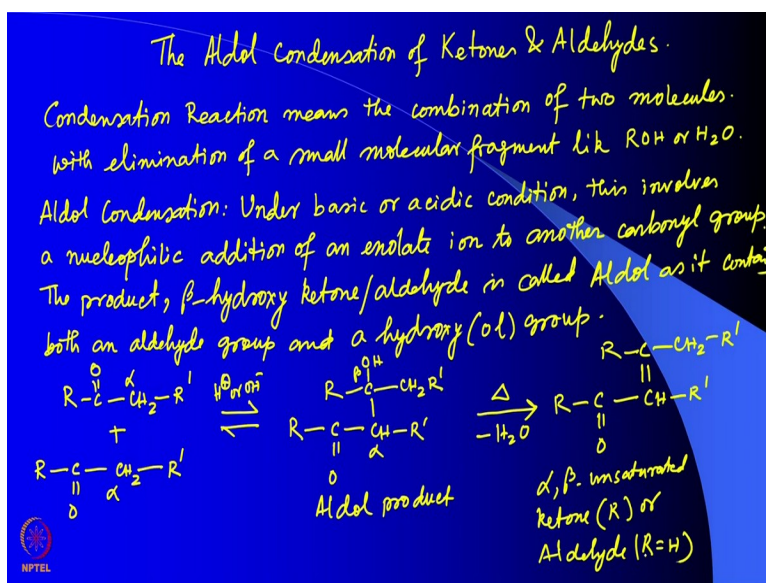 The Aldol Condensation of Ketones & Aldehydes.
Condensation Reaction means the combination of two molecules.
with elimination of a small molecular fragment lik ROH or H2O.
Aldol Condensation: Under basic or acidic condition, this involves
a nucleophilic addition of an enolate ion to another carbonyl group.
The product, β-hydroxy ketone/aldehyde is called Aldol as it contai
both an aldehyde group and a hydroxy (ol) group.
O
R-C-CH2-R'
α
+
R-C-CH2-R'
O
α
H⊕ or OH-
β OH
R-C-CH2R'
R-C-CH-R'
O
α
Aldol product
Δ
-H2O
R-C-CH2-R'
R-C-CH-R'
O
α,β-unsaturated
ketone (R) or
Aldehyde (R=H)
NPTEL